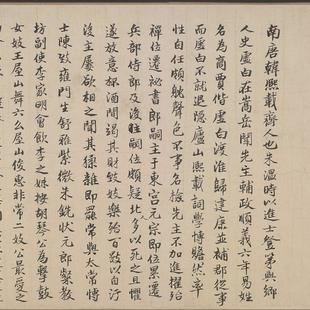 南唐韓熙載齊人也朱溫時以進士登第與鄉
人史虛白在嵩岳聞先主輔政順義六年易姓
名為商賈偕虛白渡淮歸建康並補郡從事
而虛白不就退隱廬山熙載詞學博贍然率
性自任頗躭聲色不事名檢先主不加進擢殆
禪位遷祕書郎嗣主于東宮元宗即位累遷
兵部侍郎及後主嗣位頗疑北人多以死之且懼
遂放意杯酒間竭其財致妓樂殆百數以自汙
後主屢欲相之聞其猱雜即罷常與太常博
士陳致雍門生舒雅紫微朱銑狀元郎粲教
坊副使李家明會飲李之妹按胡琴公為擊鼓
女妓王屋山舞六么屋山俊惠非常二妓公最愛之